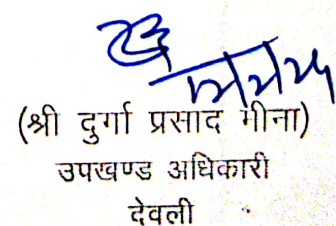 (श्री दुर्गा प्रसाद मीना)
उपखण्ड अधिकारी
देवली